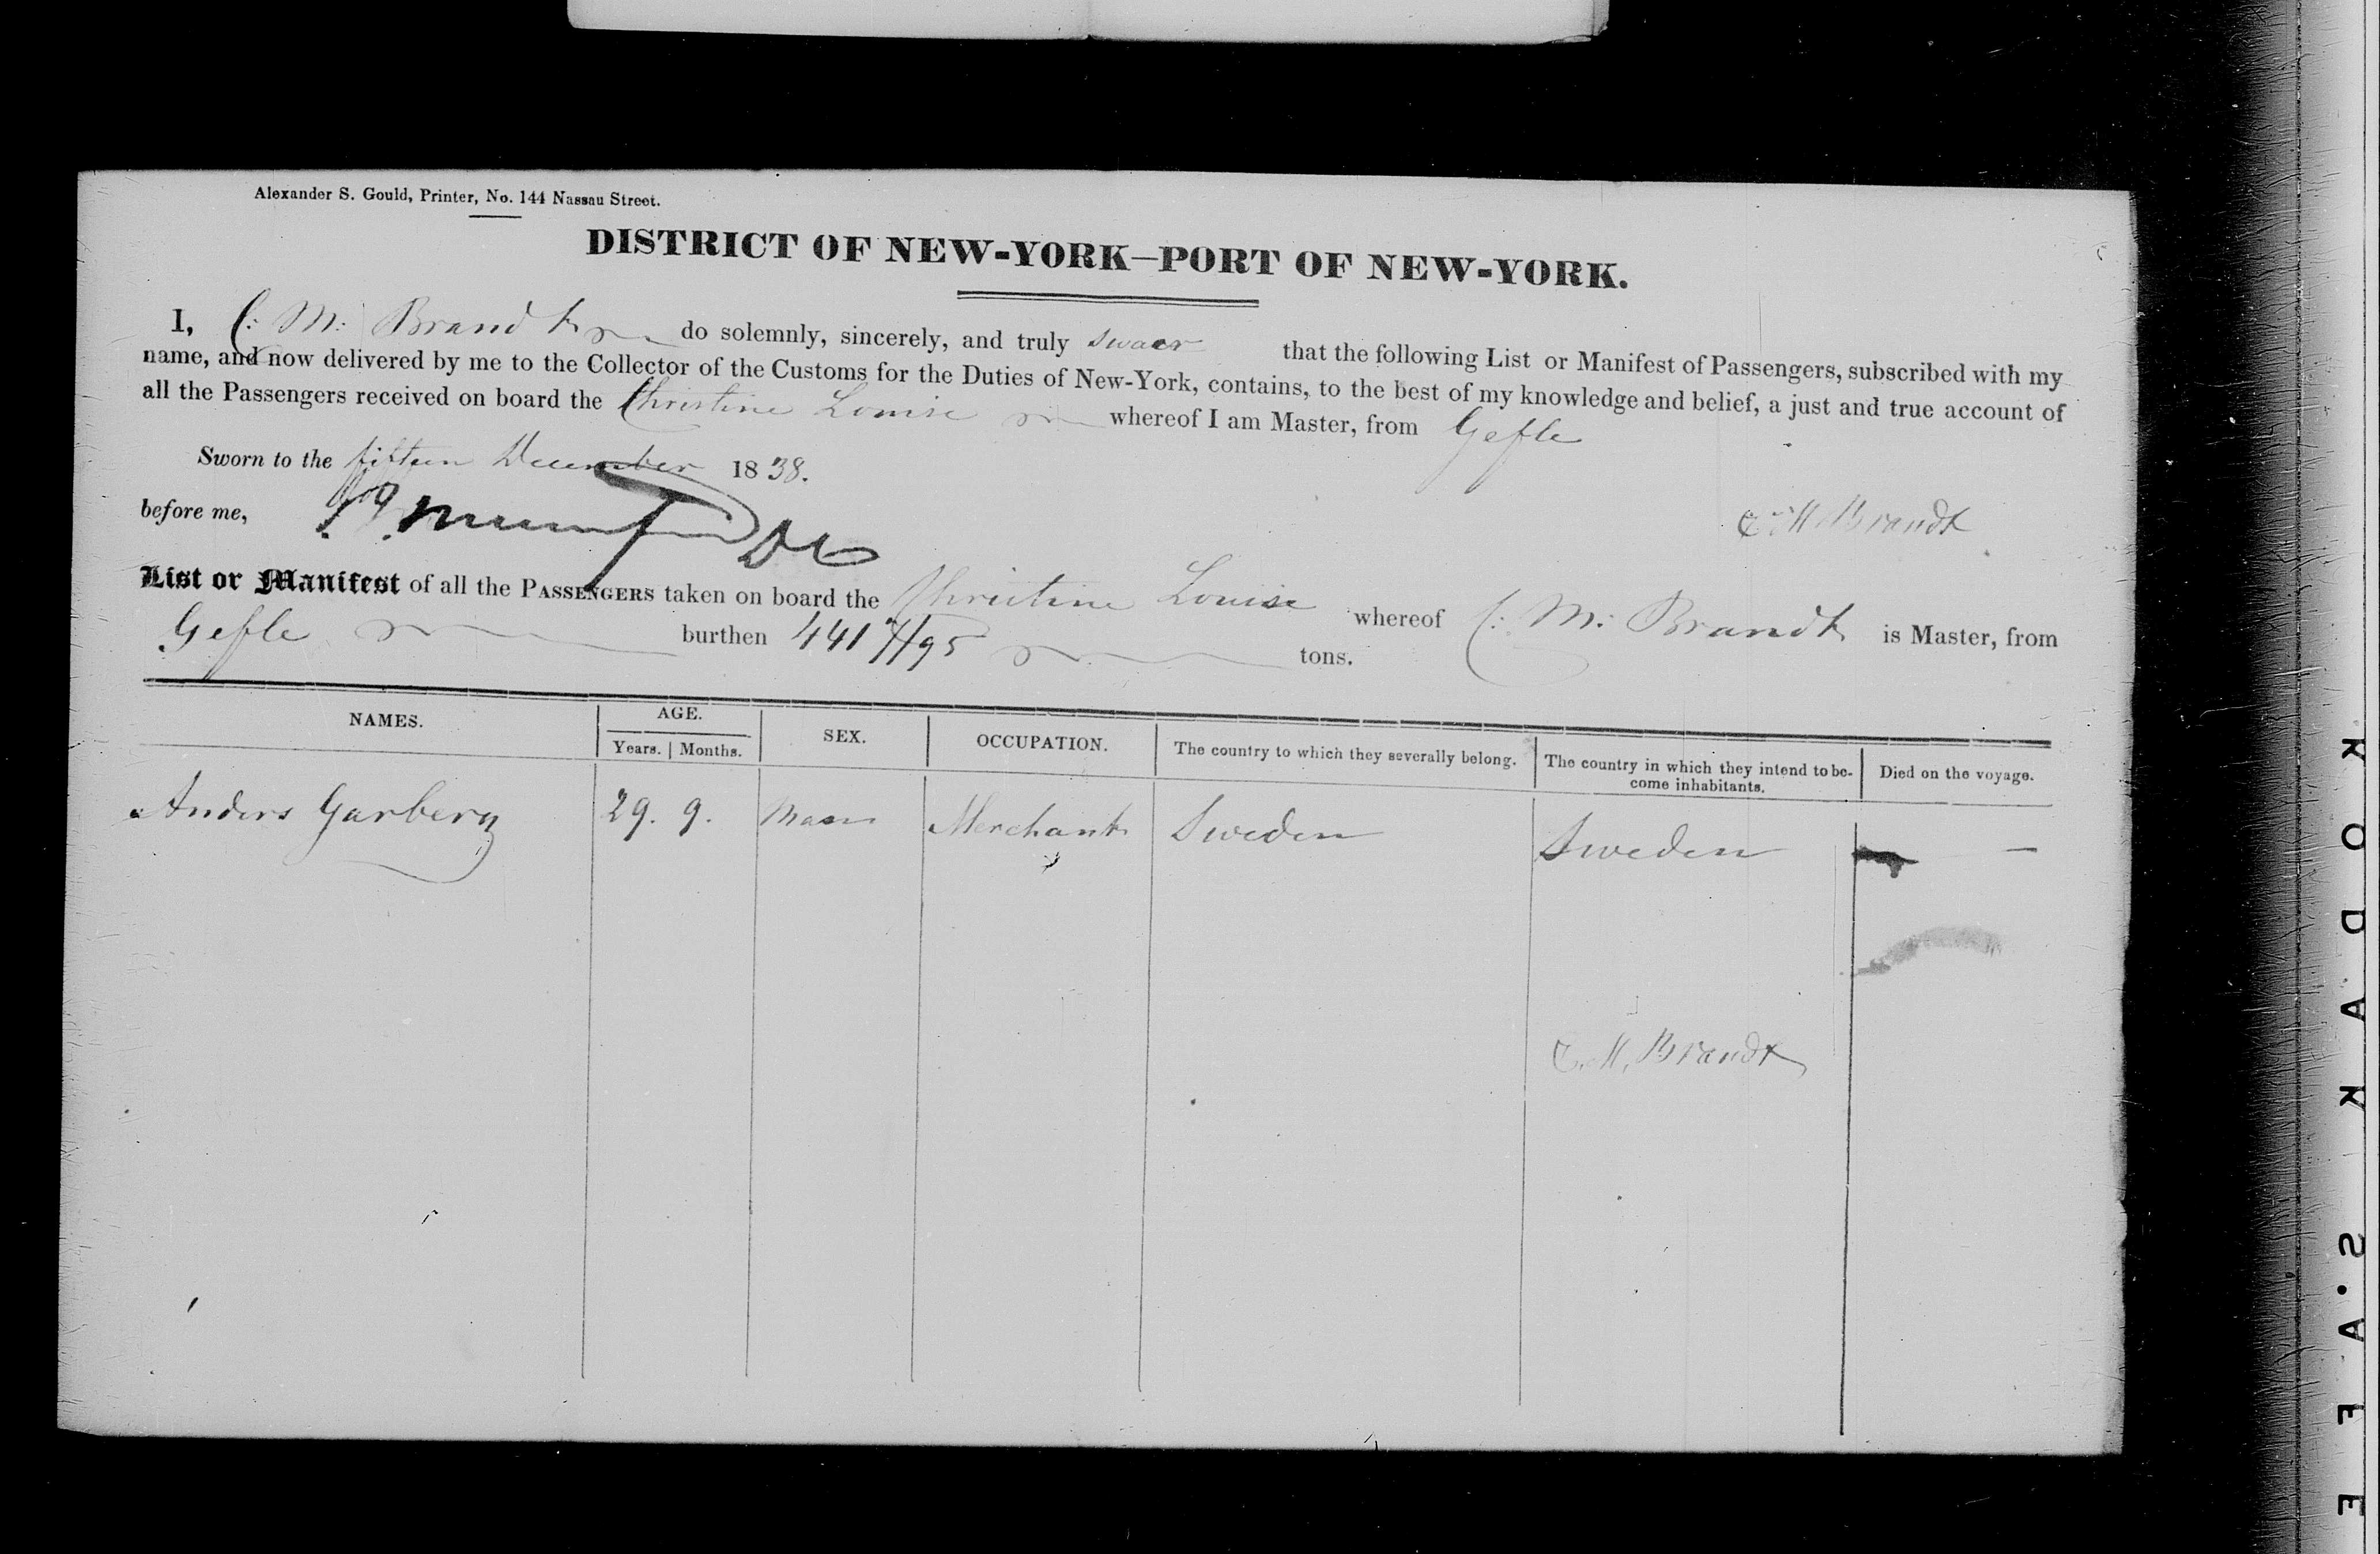 Alexander S. Gould, Printer, No. 144 Nassau Street.
DISTRICT OF NEW-YORK—PORT OF NEW-YORK.
I, C: M: Brandt do solemnly, sincerely, and truly swaer that the following List or Manifest of Passengers, subscribed with my
name, and now delivered by me to the Collector of the Customs for the Duties of New-York, contains, to the best of my knowledge and belief, a just and true account of
all the Passengers received on board the Christine Louise whereof I am Master, from Gefle
Sworn to the fifteen December 1838.
before me,
C. M. Brandt
List or Manifest of all the PASSENGERS taken on board the Christine Louise whereof C: M: Brandt is Master, from
Gefle burthen 441 tons.
NAMES. AGE. Years. Months. SEX. OCCUPATION. The country to which they severally belong. The country in which they intend to become inhabitants. Died on the voyage.
Anders Garberg 29. 9. Man Merchant Sweden Sweden —
C. M. Brandt
KODAK S.AFE